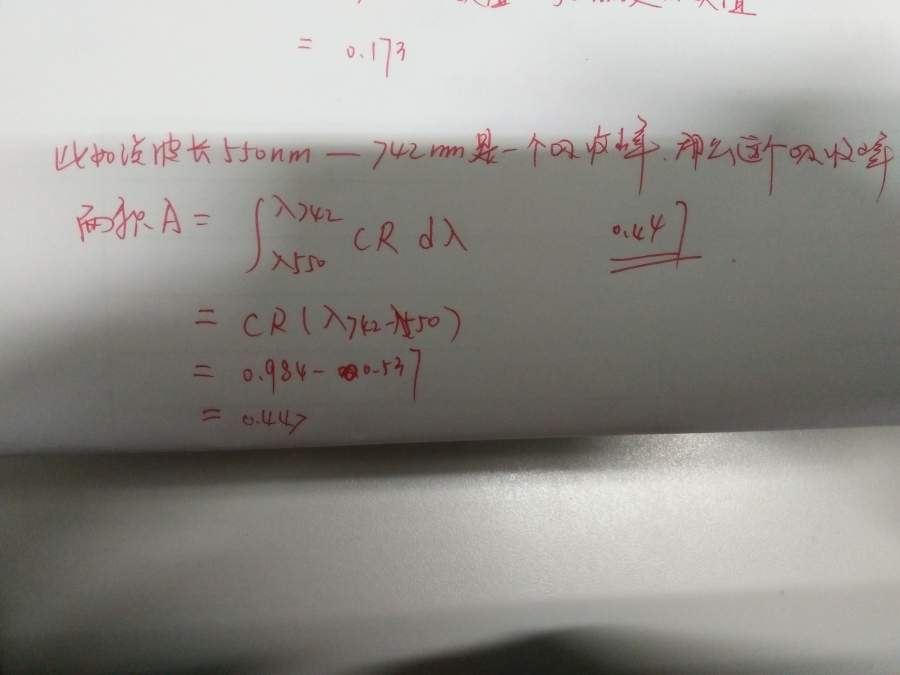 = 0.173
比如说波长550nm — 742nm是一个吸收峰.那么这个吸收峰
面积A = ∫λ550 λ742 CR dλ 0.447
= CR(λ742-λ550)
= 0.984-0.537
= 0.447